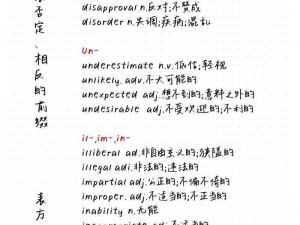 表否定、相反的前缀
disapproval n.反对;不赞成
disorder n.失调;疾病;混乱
Un-
underestimate n.v.低估;轻视
unlikely. adv.不大可能的
unexpected adj.想不到的;意料之外的
undesirable adj.不受欢迎的;不利的
il-,im-,in-
illiberal ad.非自由主义的;狭隘的
illegal adi.非法的;违法的
impartial adj.公正的;不偏不倚的
improper. adj.不适当的;不正当的
inability n.无能
表方